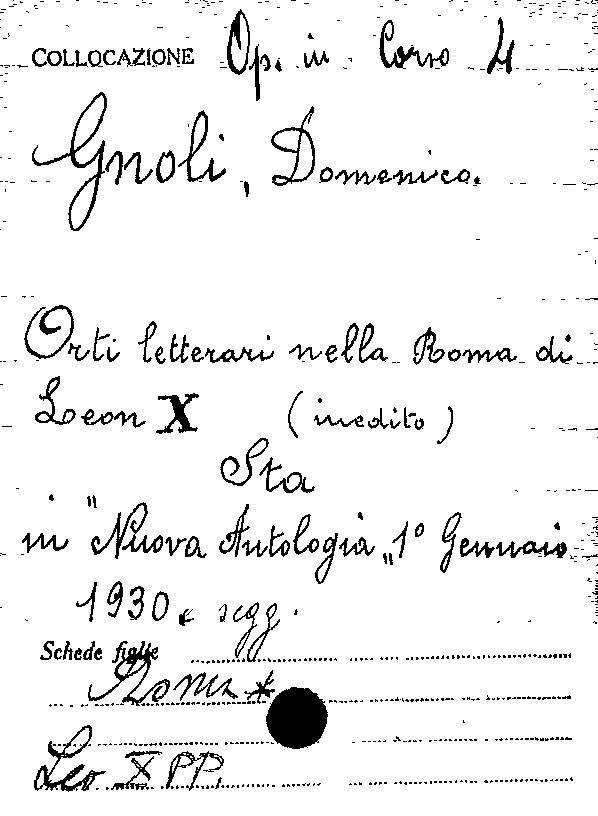 COLLOCAZIONE Op. in Corso 4
Gnoli, Domenico.
Orti letterari nella Roma di
Leon X (inedito)
Sta
in "Nuova Antologia„ 1° Gennaio
1930 e segg.
Schede figlie
Roma *
Leo X PP.